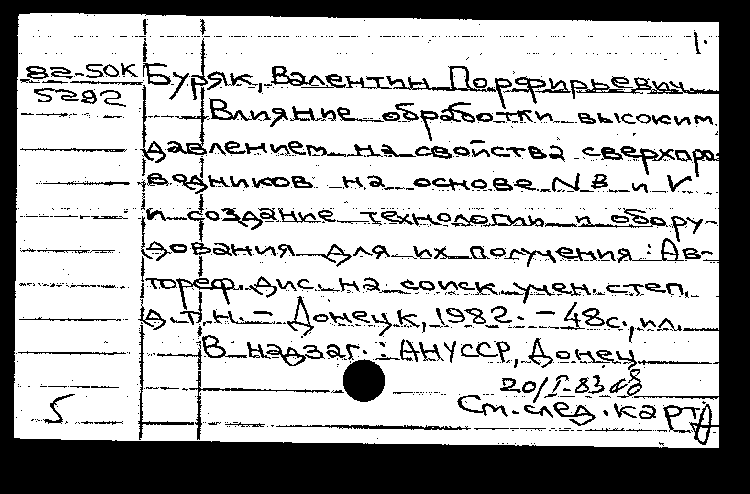 1.
82-50К Буряк, Валентин Порфирьевич
5292
Влияние обработки высоким
давлением на свойства сверхпро-
водников на основе NB и V
и создание технологии и обору-
дования для их получения: Ав-
тореф. дис. на соиск учен. степ.
д.т.н. - Донецк, 1982. - 48с., ил.
В надзаг.: АНУССР, Донец.
20/I-83
5 См. след. карт